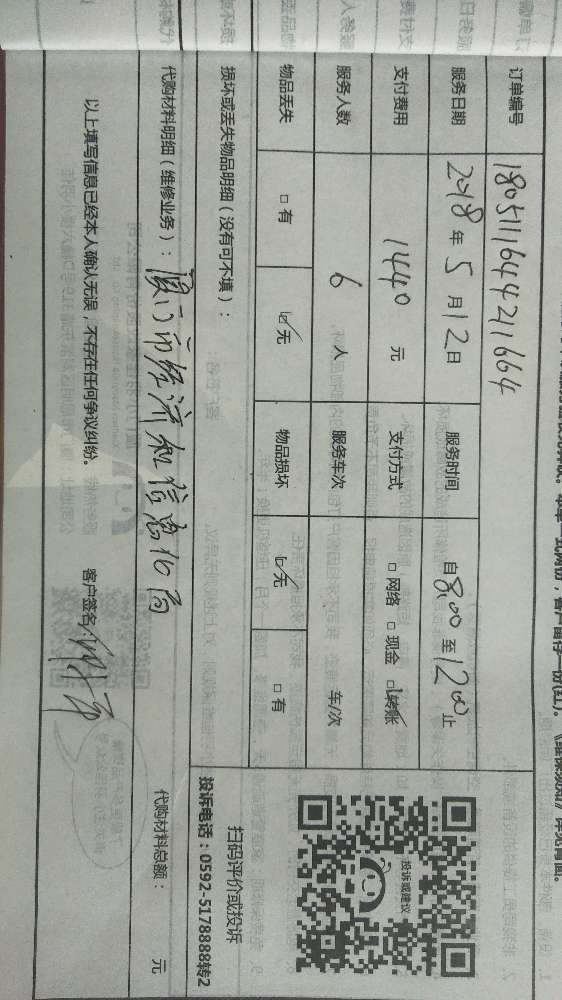 订单编号 180511164421664
服务日期 2018年5月12日 服务时间 自8:00至12:00止
支付费用 1440 元 支付方式 □网络 □现金 ☑转账
服务人数 6 人 服务车次 车/次
物品丢失 □有 ☑无 物品损坏 ☑无 □有
损坏或丢失物品明细(没有可不填):
代购材料明细(维修业务): 厦门市经济和信息化局 代购材料总额: 元
以上填写信息已经本人确认无误,不存在任何争议纠纷。 客户签名:
投诉或建议
扫码评价或投诉
投诉电话:0592-5178888转2